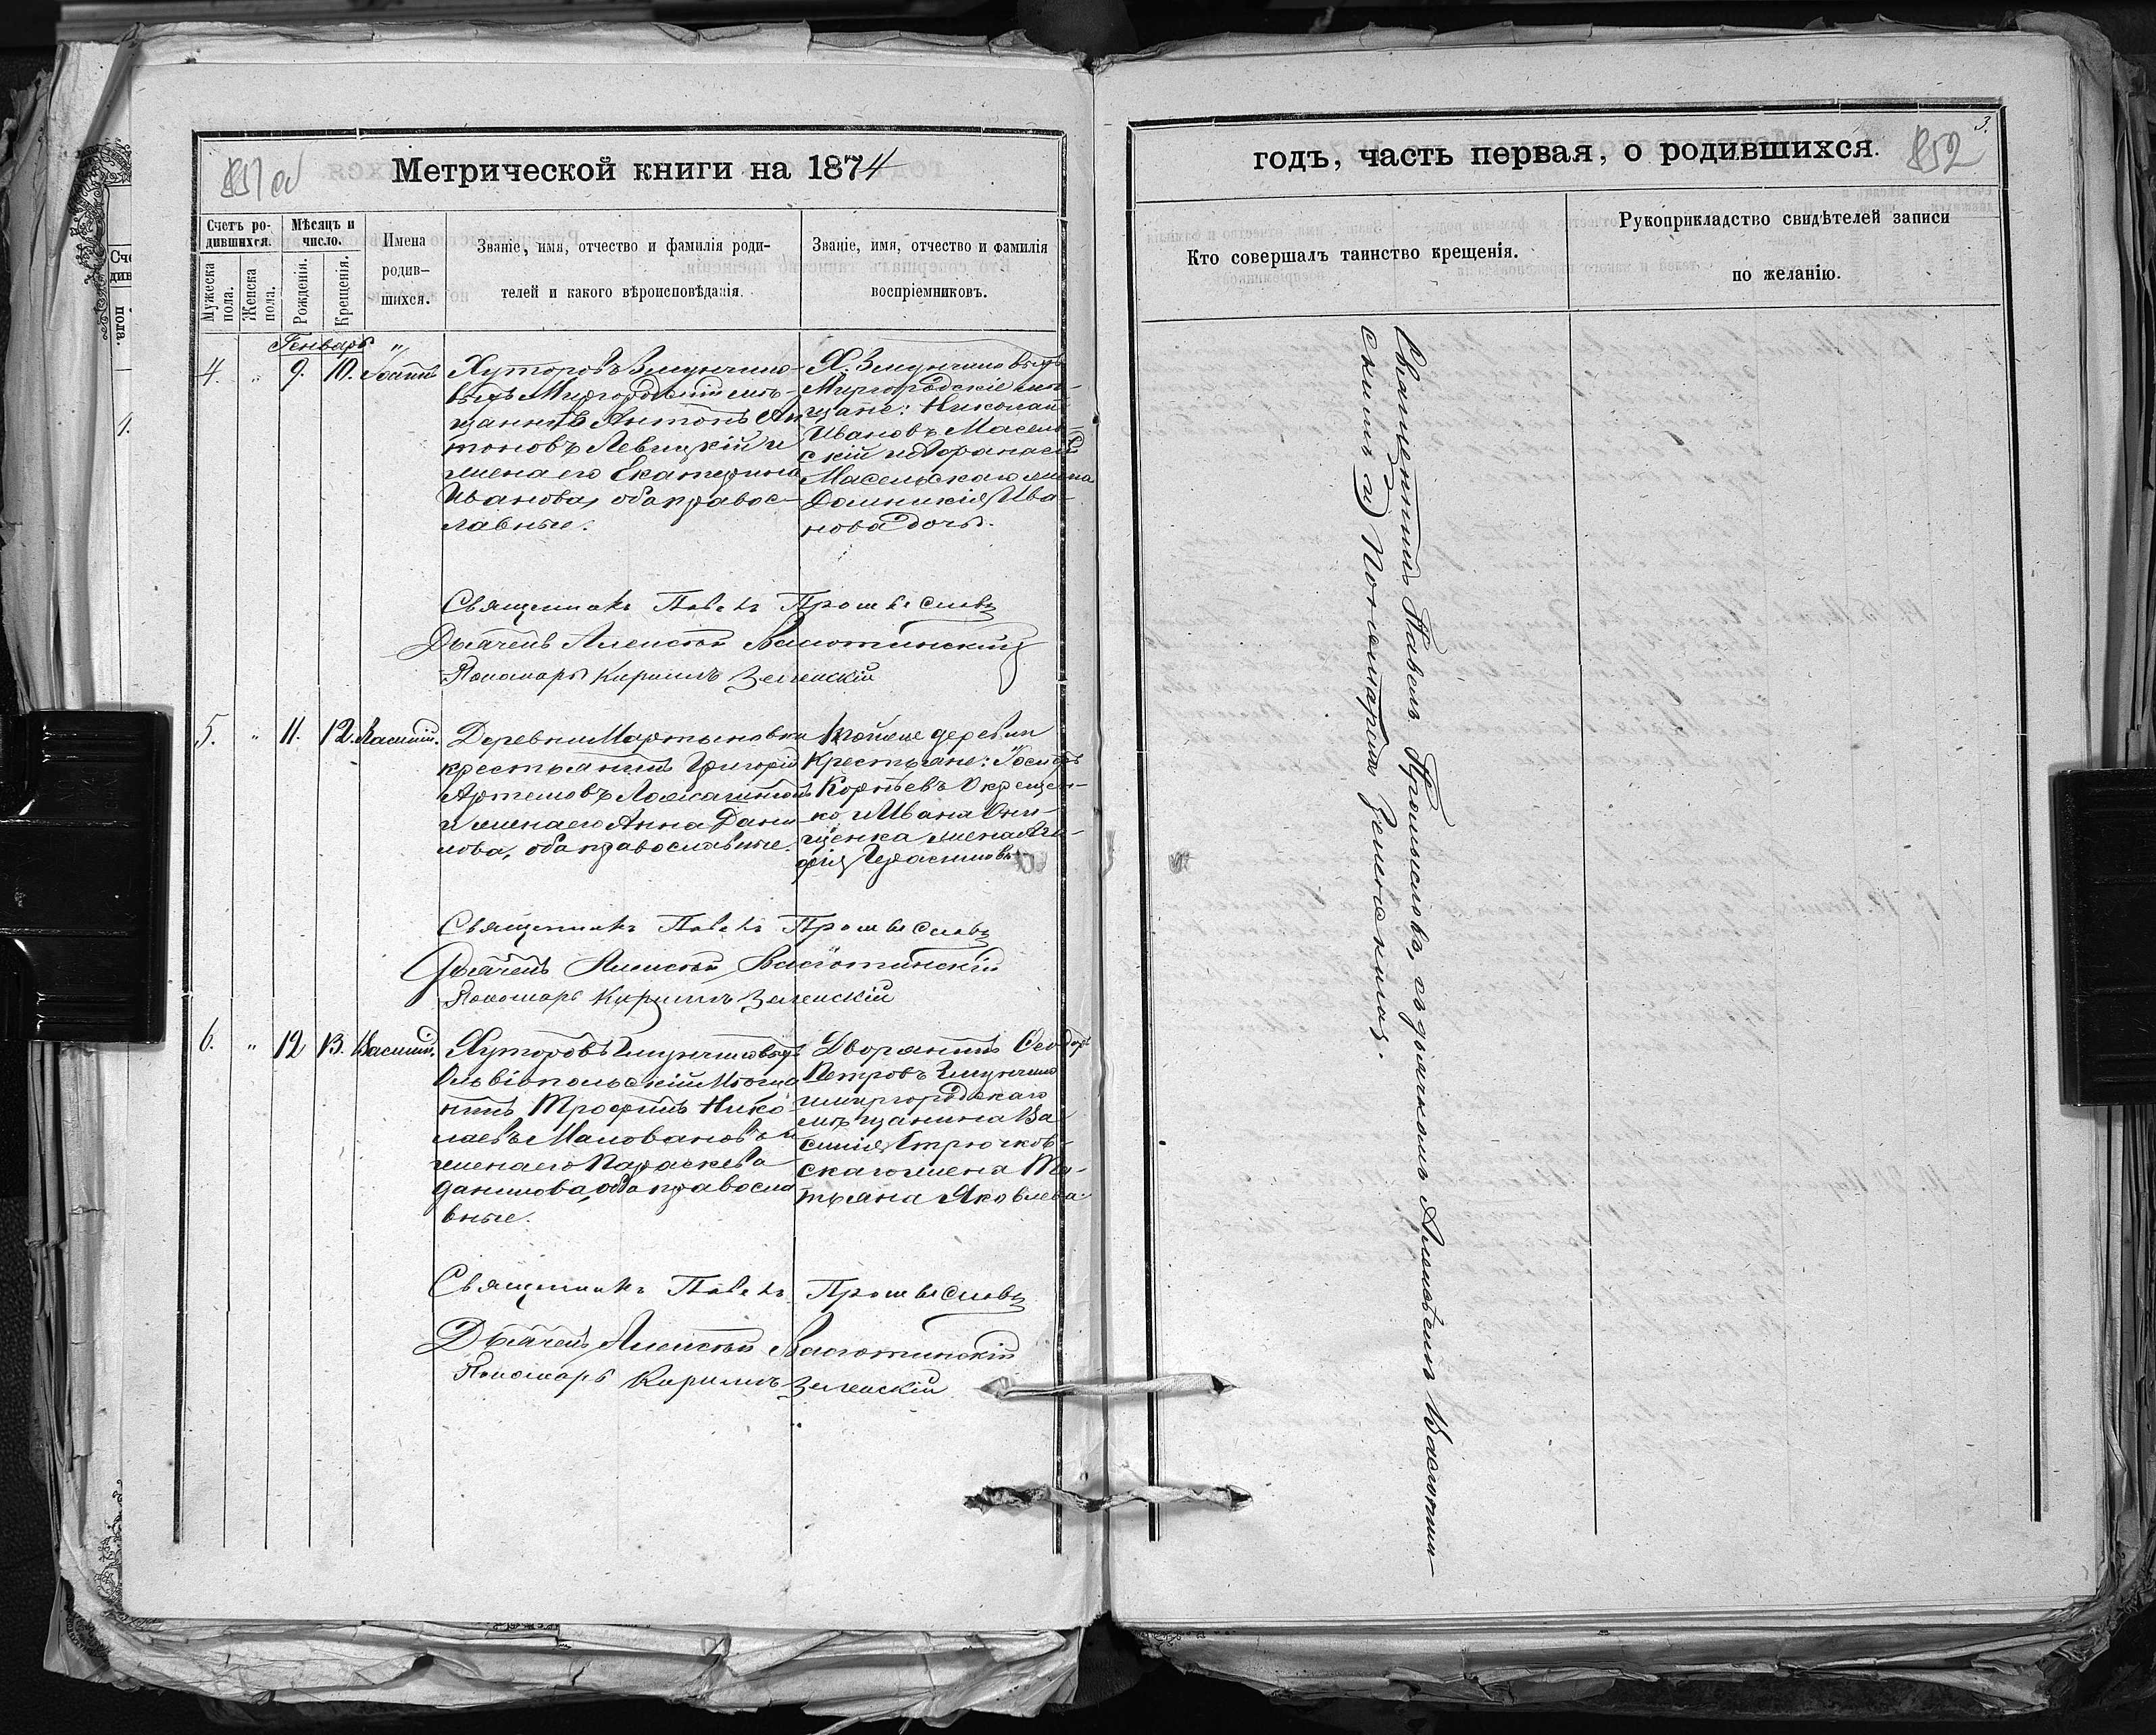 Метрической книги на 1874
Счетъ ро-
дившихся.
Мужеска пола.
Женска пола.
Мѣсяцъ и
число.
Рожденія.
Крещенія.
Имена
родив-
шихся.
Званіе, имя, отчество и фамилія роди-
телей и какого вѣроисповѣданія.
Званіе, имя, отчество и фамилія
воспріемниковъ.
Генварь
4. „ 9. 10. Іоаннъ
Хуторовъ
Миргородскій мѣ-
щанинъ Антонъ Ан
тоновъ Левицкій и
жена его Екатерина
Иванова, оба правос-
лавные.
Х.
Миргородскіе мѣ-
щане: Николай
Ивановъ Масель-
скій и Афанасія
Масельскаго жена
Домникія Ива-
нова дочь.
Священникъ Павелъ Промысловъ
Дьячекъ Алексѣй
Пономарь Кириллъ Зеленскій
5. „ 11. 12. Василій.
Деревни Мартыновки
крестьянинъ Григорій
Артемовъ
и жена его Анна Дани
лова, оба православные.
Тойже деревни
Крестьяне: Іосифъ
Корнѣевъ Окрещен-
ко и Ивана Они-
щенка жена Ага-
фія Герасимова
Священникъ Павелъ Промысловъ
Дьячекъ Алексѣй
Пономарь Кириллъ Зеленскій
6. „ 12 13. Василій.
Хуторовъ
Ольвіопольскій Мѣща
нинъ Трофимъ Нико
лаевъ Маловановъ и
жена его Параскева
Данилова, оба правосла
вные.
Дворянинъ Ѳеодоръ
Петровъ
и миргородскаго
мѣщанина Ва
силія Стрючков-
скаго жена Та-
тьяна Яковлева.
Священникъ Павелъ Промысловъ
Дьячекъ Алексѣй
Пономарь Кириллъ Зеленскій
годъ, часть первая, о родившихся.
3.
852
Кто совершалъ таинство крещенія.
Рукоприкладство свидѣтелей записи
по желанію.
Священникъ Павелъ Промысловъ, съ дьячкомъ Алексѣемъ
скимъ и Пономаремъ Зеленскимъ.